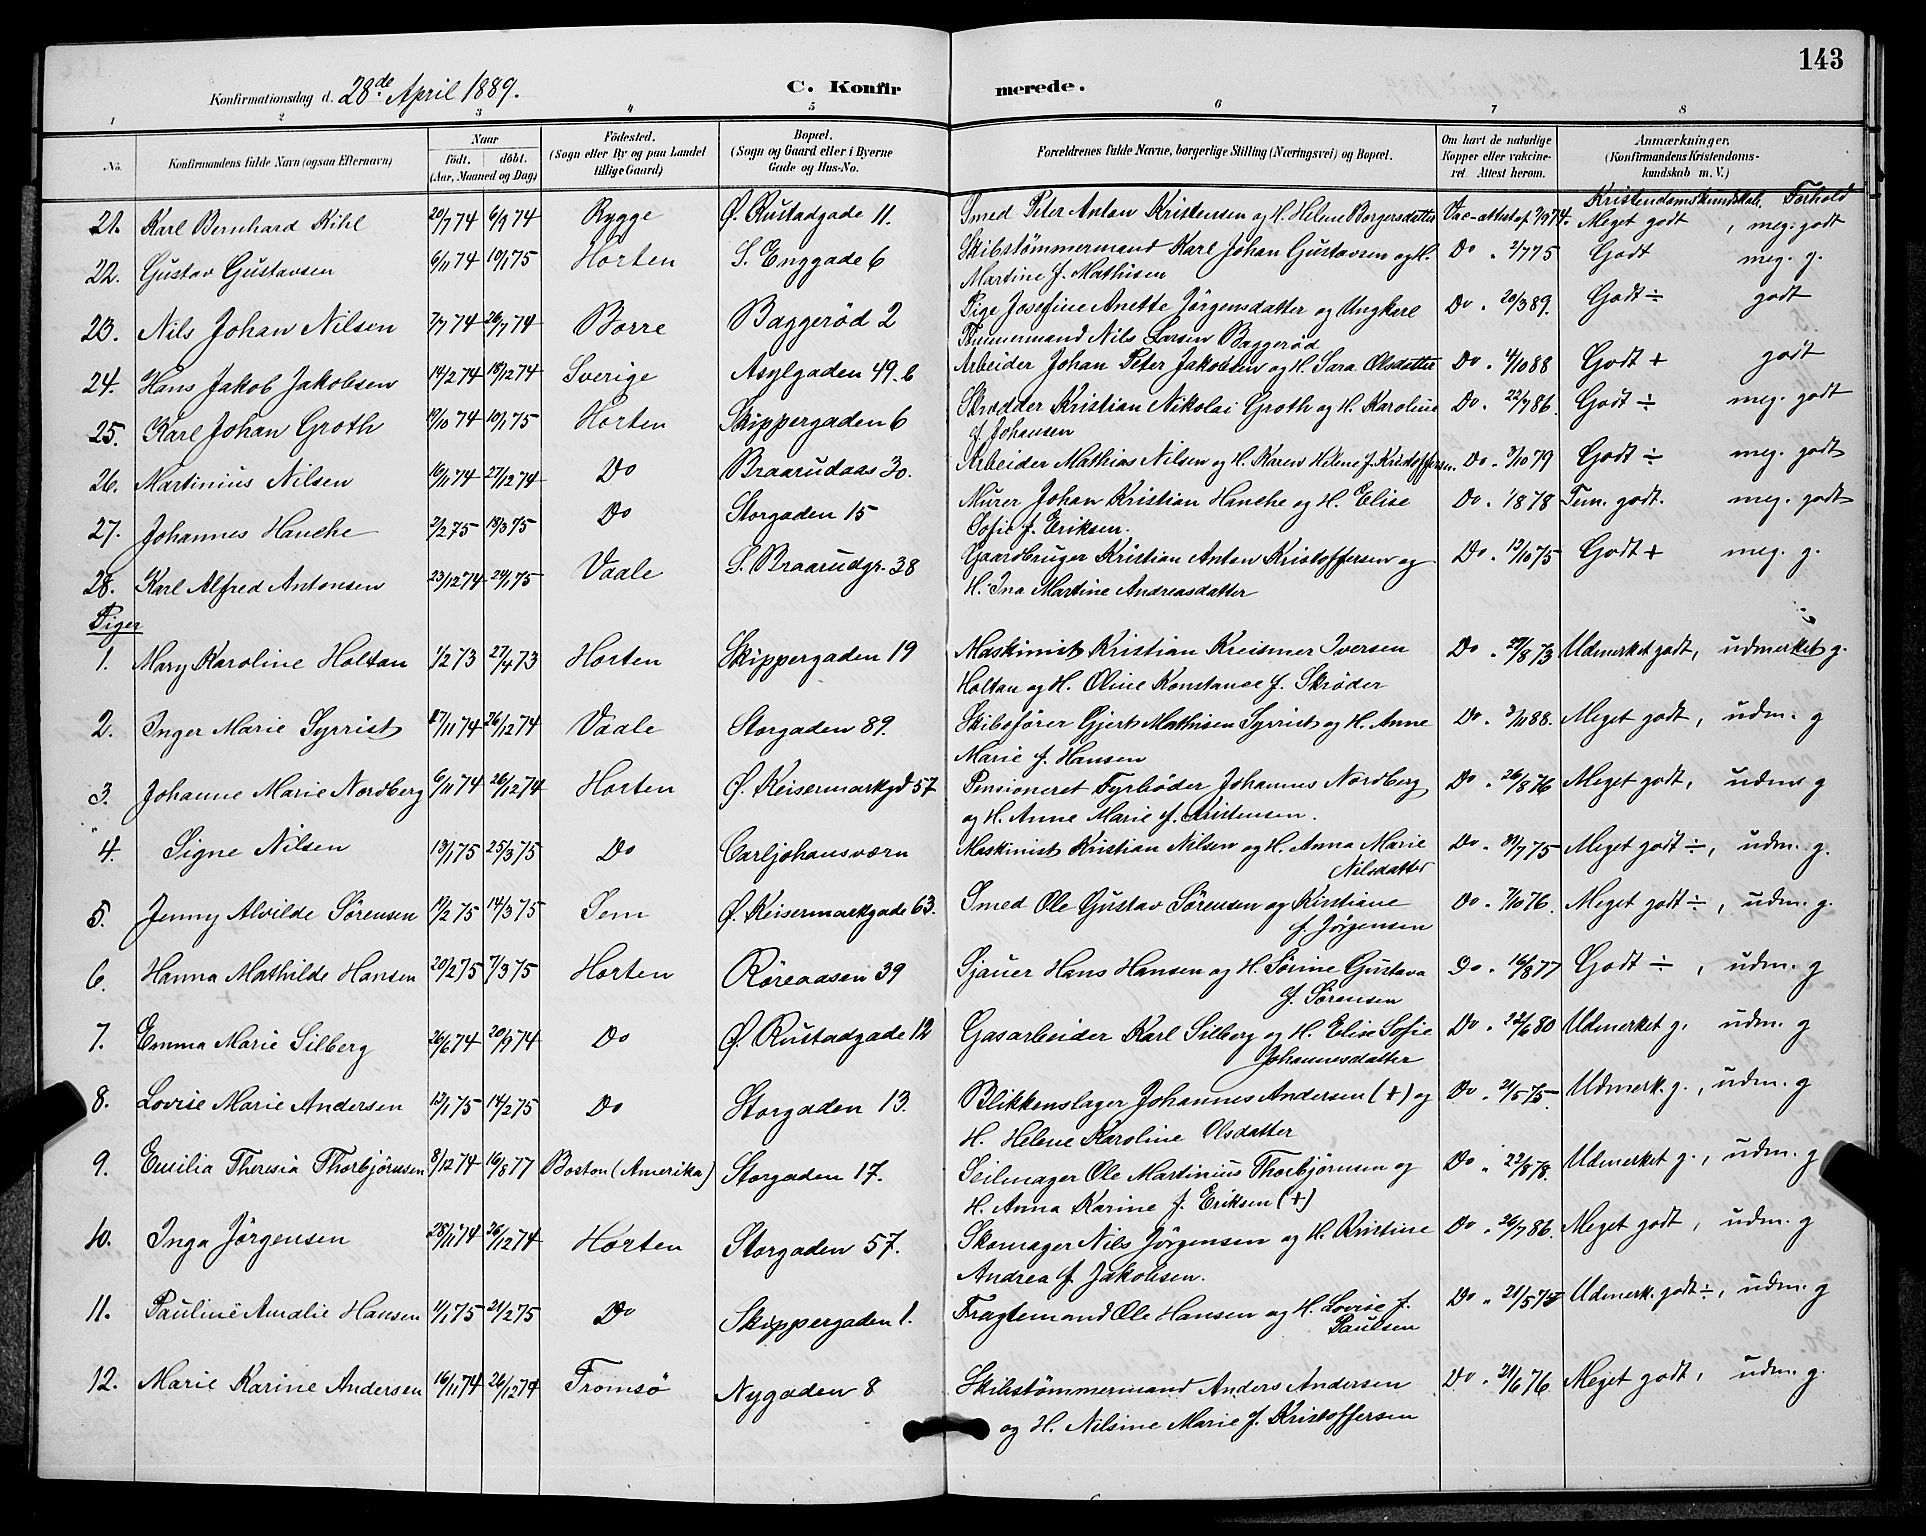 143
Konfirmationsdag d. 28de April 1889. C. Konfirmerede.
1 2 3 4 5 6 7 8
No. Konfirmandens fulde Navn (ogsaa Efternavn) Naar født. døbt. (Aar, Maaned og Dag) Fødested. (Sogn eller By og paa Landet tillige Gaard) Bopæl. (Sogn og Gaard eller i Byerne Gade og Hus-No. Forældrenes fulde Navne, borgerlige Stilling (Næringsvei) og Bopæl. Om havt de naturlige Kopper eller vakcineret. Attest herom. Anmærkninger. (Konfirmandens Kristendomskundskab m. V.)
Kristendomskundskab, Forhold
21. Karl Bernhard Kihl 20/7 74 6/9 74 Rygge Ø. Rustadgade 11. Smed Peter Anton Kristensen og H. Helene Borgersdatter Vac-attest af 7/9 74. Meget godt, meg. godt
22. Gustav Gustavsen 6/11 74 10/1 75 Horten S. Enggade 6 Skibstømmermand Karl Johan Gustavsen og H. Do " 2/7 75 Godt meg. g.
Martine f. Mathisen
23. Nils Johan Nilsen 7/7 74 26/7 74 Borre Baggerød 2 Pige Josefine Anette Jørgensdatter og Ungkarl Do " 20/3 89. Godt ÷ godt
Tømmermand Nils Larsen Baggerød
24. Hans Jakob Jakobsen 14/2 74 18/12 74 Sverige Asylgaden 49.b Arbeider Johan Peter Jakobsen og H. Sara Olsdatter Do " 4/10 88 Godt + godt
25. Karl Johan Groth 19/10 74 10/1 75 Horten Skippergaden 6 Skrædder Kristian Nikolai Groth og H. Karoline Do " 22/7 86. Godt ÷ meg. godt
f. Johansen
26. Martinius Nilsen 16/11 74 27/12 74 Do Braarudaas 30. Arbeider Mathias Nilsen og H. Karen Helene f. Kristoffersen. Do " 3/10 79 Godt ÷ meg. godt
27. Johannes Hanche 2/2 75 18/3 75 Do Storgaden 15 Murer Johan Kristian Hanche og H. Elise Do " 1/8 78 Tem. godt. meg. godt
Sofie f. Eriksen.
28. Karl Alfred Antonsen 23/12 74 24/1 75 Vaale S. Braarudgr. 38 Gaardbruger Kristian Anton Kristoffersen og Do " 12/10 75 Godt + meg. g.
H. Ina Martine Andreasdatter
Piger
1. Mary Karoline Holtan 1/2 73 27/4 73 Horten Skippergaden 19 Maskinist Kristian Kreismer Iversen Do " 27/8 73 Udmerket godt, udmerket g.
Holtan og H. Oline Konstance f. Skrøder
2. Inger Marie Syrrist 17/11 74 26/12 74 Vaale Storgaden 89. Skibsfører Gjert Mathisen Syrrist og H. Anne Do " 3/11 88. Meget godt, udm. g
Marie f. Hansen
3. Johanne Marie Nordberg 6/11 74 26/12 74 Horten Ø. Keisermarkgd 57 Pensioneret Fyrbøder Johannes Nordberg Do " 26/8 76 Meget godt, udm. g
og H. Anne Marie f. Kristensen.
4. Signe Nilsen 13/1 75 25/3 75 Do Carljohansværn Maskinist Kristian Nilsen og H. Anna Marie Do " 30/7 75 Meget godt ÷, udm. g.
Nilsdatter
5. Jenny Alvilde Sørensen 17/2 75 14/3 75 Sem Ø. Keisermarkgade 63. Smed Ole Gustav Sørensen og Kristiane Do " 7/10 76. Meget godt ÷, udm. g.
f. Jørgensen
6. Hanna Mathilde Hansen 20/2 75 7/3 75 Horten Røreaasen 39 Sjauer Hans Hansen og H. Sørine Gustava Do " 16/8 77 Godt ÷, udm. g
f. Sørensen
7. Emma Marie Silberg 26/6 74 20/9 74 Do Ø. Rustadgade 12 Gasarbeider Karl Silberg og H. Elise Sofie Do " 22/6 80 Udmerket g. udm. g
Johannesdatter
8. Lovise Marie Andersen 13/1 75 14/2 75 Do Storgaden 13. Blikkenslager Johannes Andersen (+) og Do " 21/5 75. Udmerk. g., udm. g
H. Helene Karoline Olsdatter
9. Emilia Theresia Thorbjørnsen 8/12 74 16/8 77 Boston (Amerika) Storgaden 17. Seilmager Ole Martinius Thorbjørnsen og Do " 22/8 78. Udmerket g., udm. g
H. Anna Karine f. Eriksen (+)
10. Inga Jørgensen 28/11 74 26/12 74 Horten Storgaden 57. Skomager Nils Jørgensen og H. Kristine Do " 26/7 86. Meget godt, udm. g
Andrea f. Jakobsen.
11. Pauline Amalie Hansen 1/1 75 21/2 75 Do Skippergaden 1. Fragtemand Ole Hansen og H. Lovise f. Do " 21/5 75 Udmerk. godt ÷, udm. g
Paulsen
12. Marie Karine Andersen 16/11 74 26/12 74 Tromsø Nygaden 8 Skibstømmermand Anders Andersen Do " 21/6 76. Meget godt, udm. g.
og H. Nilsine Marie f. Kristoffersen